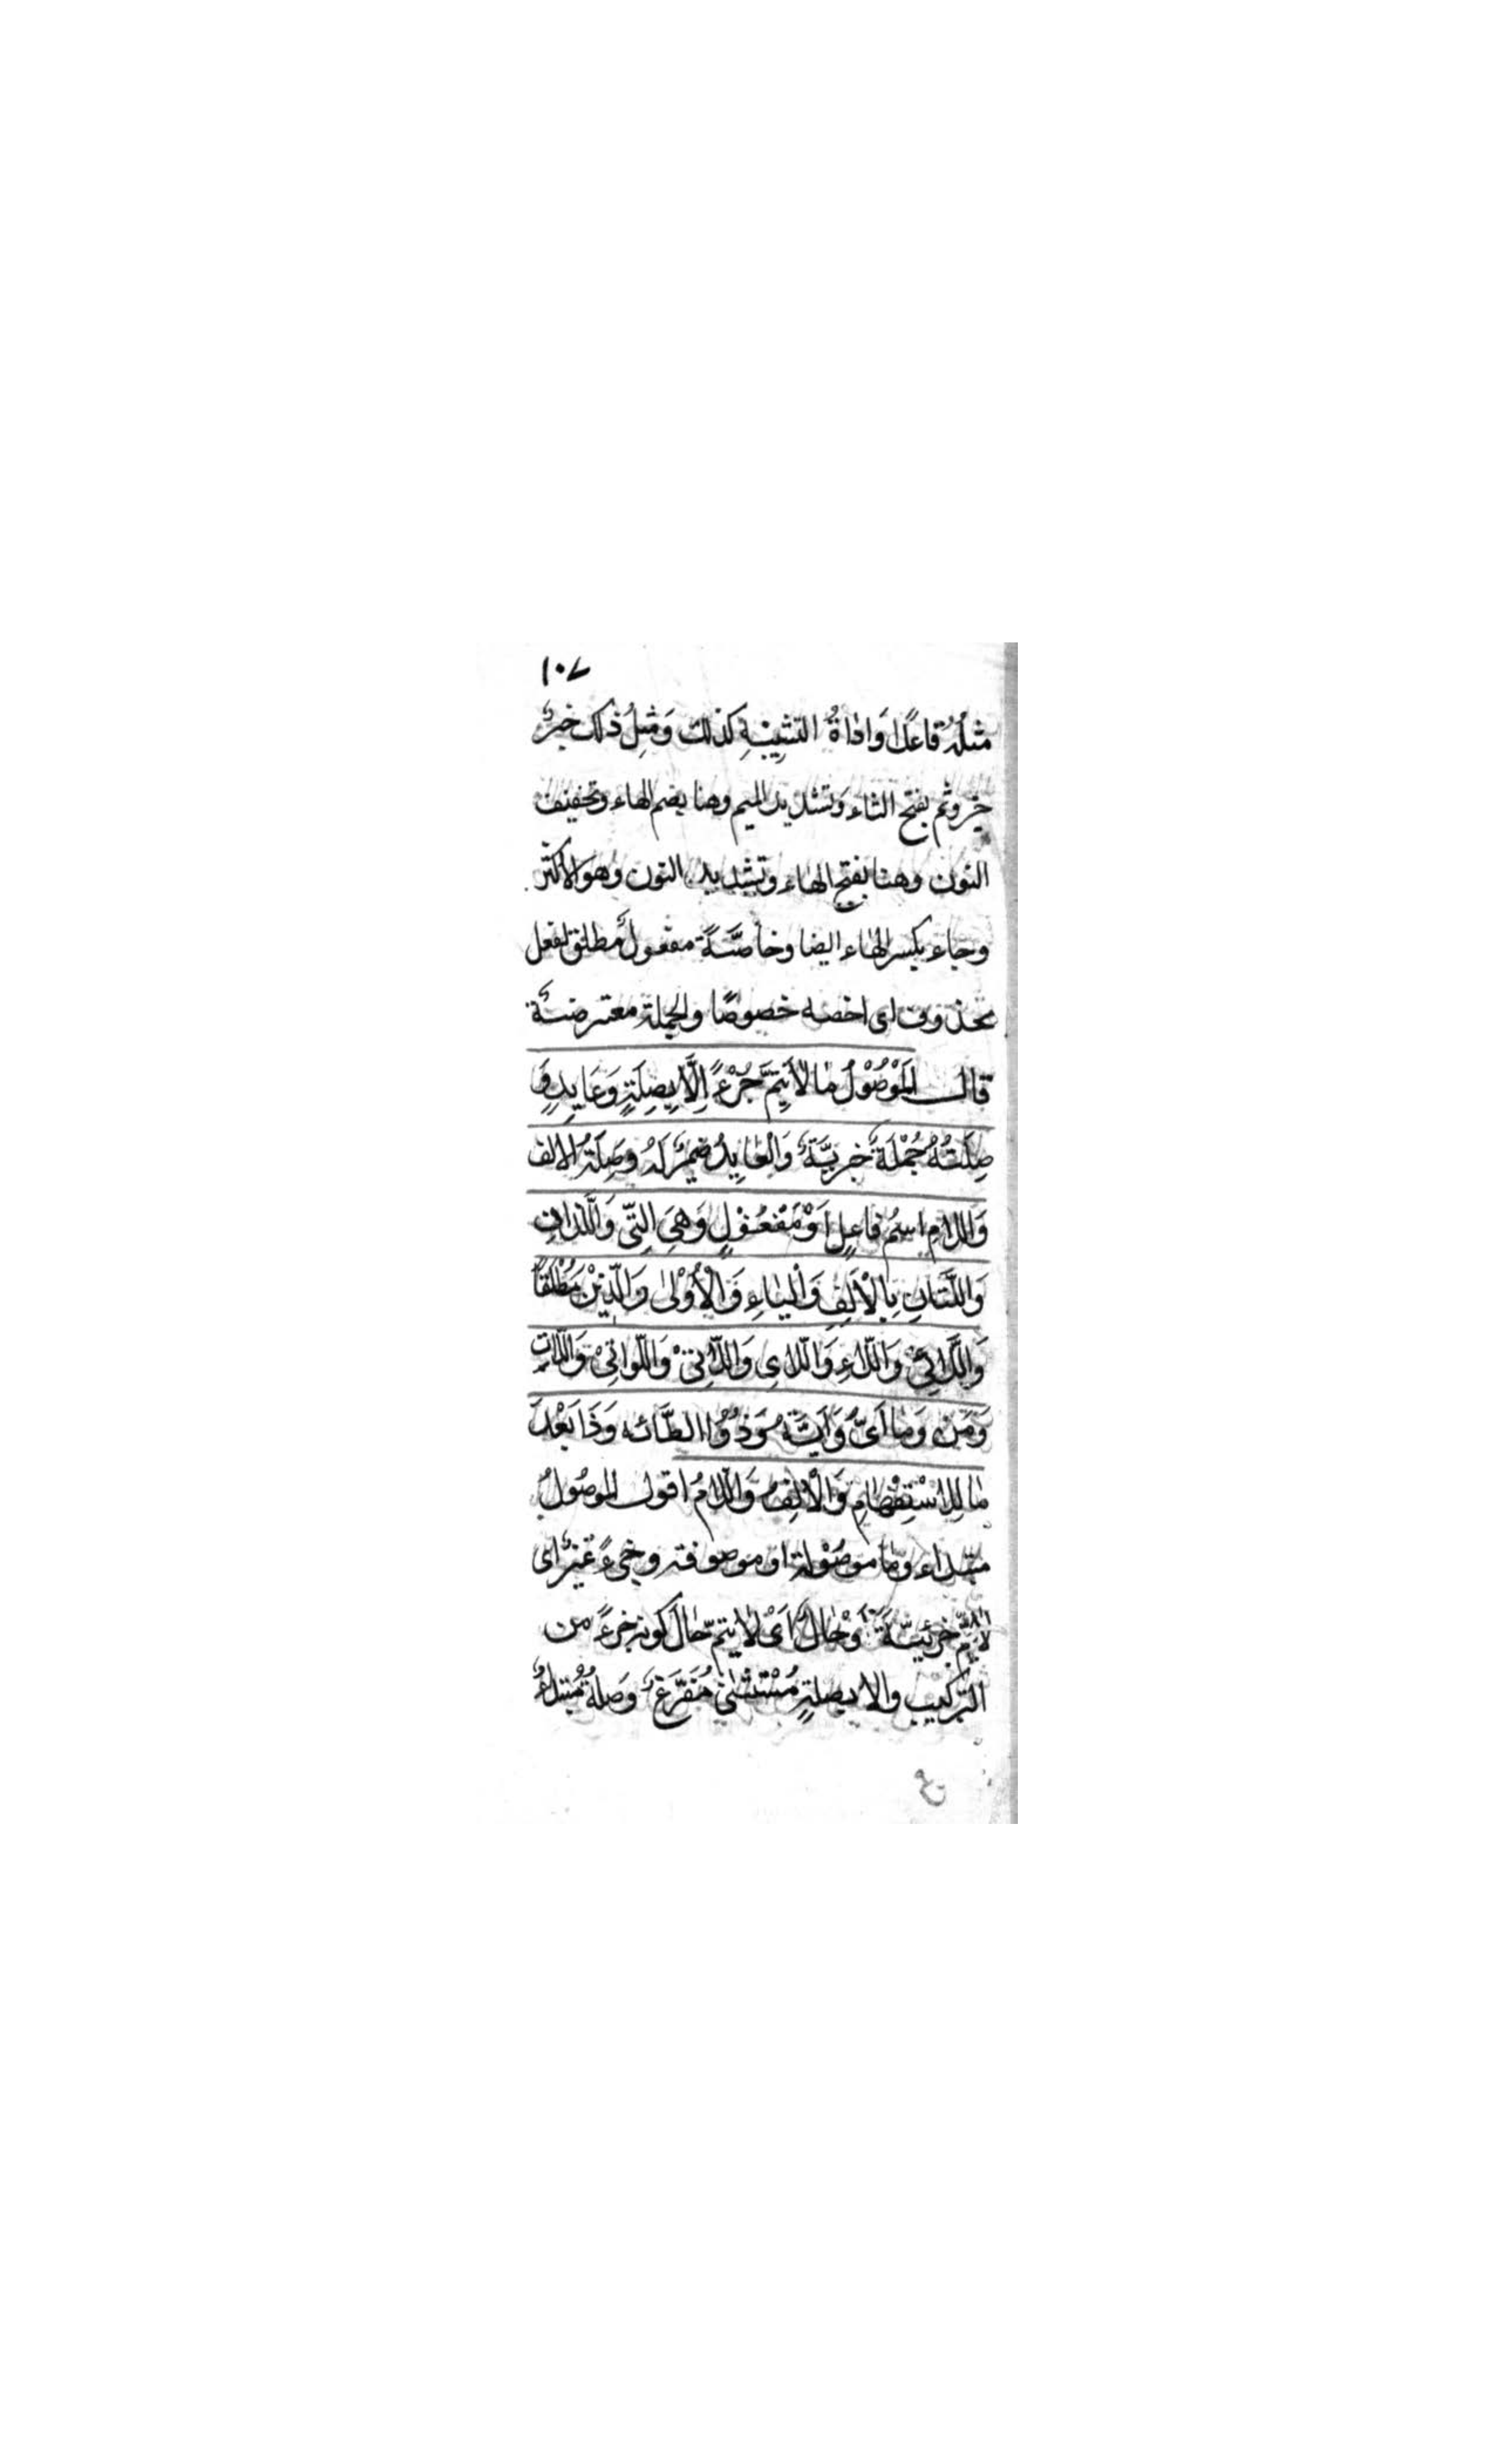 ١٠٧
مثله قاعدا واداةُ التشبيهِ كذلك وَمثِلُ ذلك خبرٌ
خبر وثم بفتح الثاء وَتشديد الميم وهنا بضم الهاء وتخفيف
النون وهنا بفتح الهاء وتشديد النون وهو الاكثر
وجاء بكسر الهاء ايضا وخاصَّةً مفعولٌ مطلق لفعل
محذوف اى اخصه خصوصًا والجملة معترضةٌ
قال اَلمَوْصُوْلُ مٰا لاٰيَتِمُّ جُزْءً اِلَّا بِصِلَةٍ وَعَايِدٍ وَ
صِلَتُهُ جُمْلَةٌ خبريَّةٌ وَالْعٰايِدُ ضميرٌ لَهُ وصِلَةُ الالف
وَاللامِ اسمُ فاعِلٍ اَوْ مَفعُوْلٍ وَهِيَ الَّتِى وَالَّلذانِ
وَاللَّتَانِ بِالْاَلِفِ وَاْليٰاءِ وَالْأُوْلىٰ وَالَّذِيْنَ مُطْلَقًا
وَاللَّائِىْ وَاللّاءِ وَاللّاىِ وَاللّاتِىْ وَاللَّوَاتِىْ وَاللّاتِ
وَمَنْ وَمٰا اَىُّ وَاَيَّةُ وَذُوُا الطَّائه وَذَا بَعْدَ
مٰا لِلاِسْتِفْهٰامِ وَالْاَلِفُ وَاللّامُ اقول الموصُولُ
مبتداء وما موصُوْلة او موصوفة وجزءً تميزٌ اى
لايتمّ جزئيّةً اَوْحٰالٌ اَىْ لايتم حٰالَ كونه جزءً من
التّركيب والا بصلةٍ مُسْتثنىٰ مُفَرَّغٌ وصلةُ مُبتداءٌ